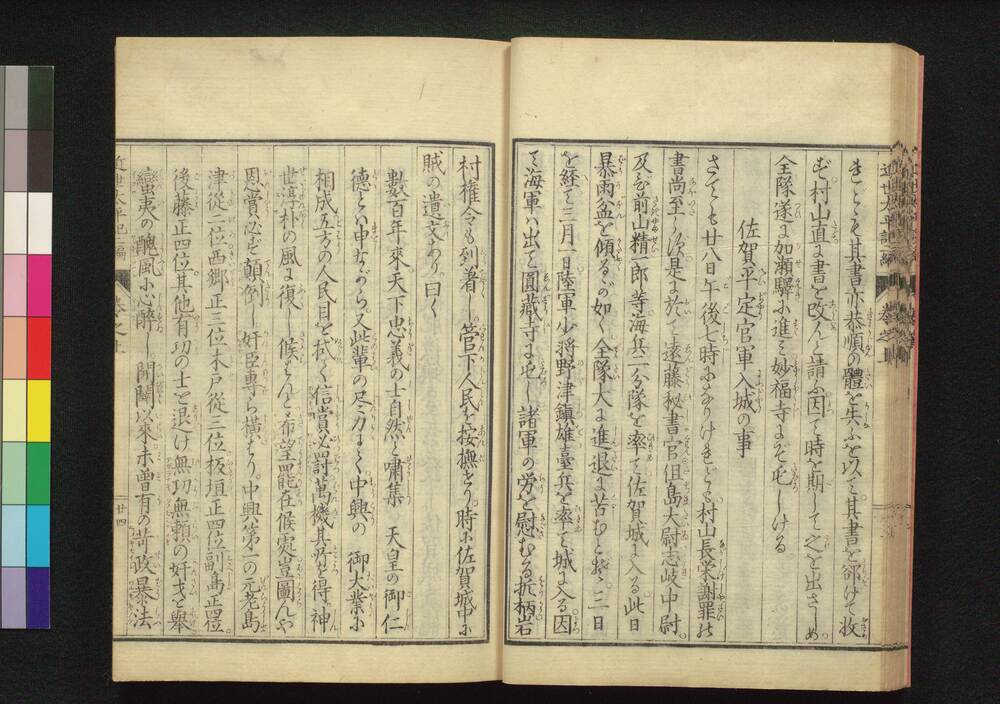 きども其書亦恭順の體を失ふを以て其書を郤けて收
ず村山直に書を改んと請ふ因て時を期して之を出さしめ
全隊遂に加瀬驛に進て妙福寺にぞ屯しける
佐賀平定官軍入城の事
さても廿八日午後七時になりけれども村山長榮謝罪の
書尚至らず是に於て遠藤秘書官伹島大尉志岐中尉
及び前山精一郎等海兵二分隊を率て佐賀城に入る此日
暴雨盆を傾るが如く全隊大に進退に苦むとぞ三日
を経て三月一日陸軍少將野津鎮雄臺兵を率て城に入る因
て海軍は出て圓藏寺に屯し諸軍の労を慰むる折柄岩
村権令も到着し管下人民を按撫せり時に佐賀城中に
賊の遺文あり曰く
數百年來天下忠義の士自然と嘯集 天皇の御仁
德とハ申ながら又此輩の尽力にて中興の 御大業に
相成五方の人民目を拭て信賞必罰萬機其所を得て神
世淳朴の風に復し候はんと希望罷在候處豈圖んや
恩賞必ず顛倒し奸臣專ら横はり中興第一の元老島
津從二位西郷正三位木戸從三位板垣正四位副島正四位
後藤正四位其他有功の士を退け無功無頼の奸才を擧
蠻夷の醜風に心醉し開闢以來未曽有の苛政暴法
近世太平記二編 巻之上 廿四